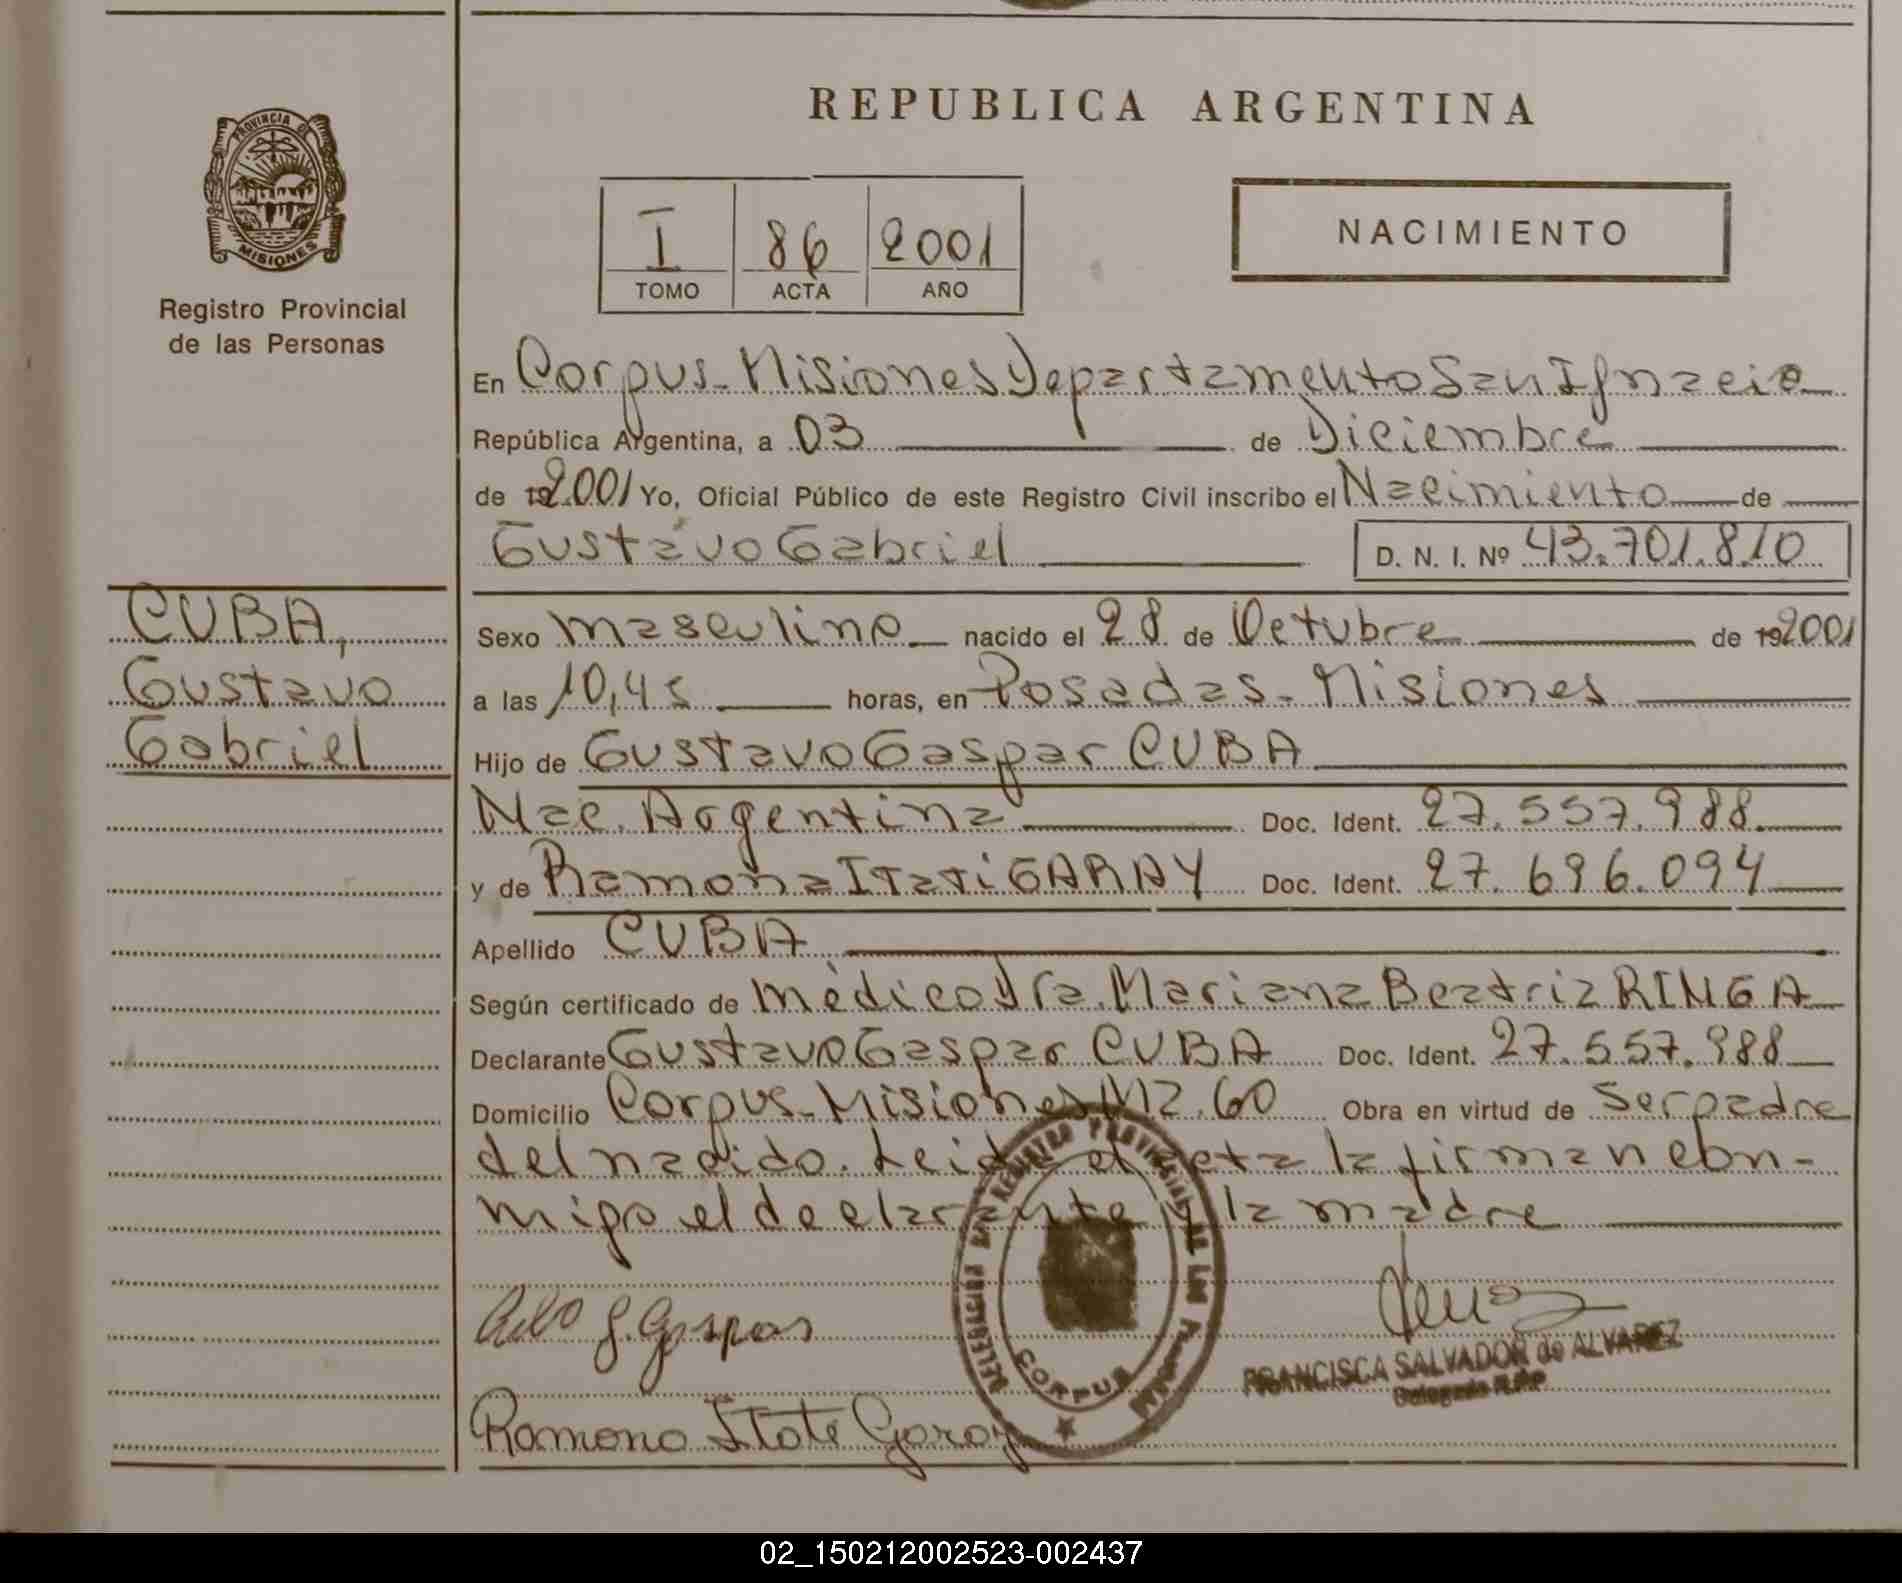 REPUBLICA ARGENTINA
PROVINCIA DE
MISIONES
Registro Provincial
de las Personas
I 86 2001
TOMO ACTA AÑO
NACIMIENTO
En Corpus-Misiones Departamento San Ignacio
República Argentina, a 03 de Diciembre
de 192001 Yo, Oficial Público de este Registro Civil inscribo el Nacimiento de
Gustavo Gabriel D. N. I. Nº 43.701.810
CUBA,
Gustavo
Gabriel
Sexo masculino nacido el 28 de Octubre de 192001
a las 10,45 horas, en Posadas-Misiones
Hijo de Gustavo Gaspar CUBA
Nac. Argentina Doc. Ident. 27.557.988
y de Ramona Itati GARAY Doc. Ident. 27.696.094
Apellido CUBA
Según certificado de médico Dra. Mariana Beatriz RINGA
Declarante Gustavo Gaspar CUBA Doc. Ident. 27.557.988
Domicilio Corpus-Misiones Mz. 60 Obra en virtud de Ser padre
del nacido. Leida el acta la firman con-
migo el declarante y la madre
REGISTRO PROVINCIAL DE LAS
CORPUS
FRANCISCA SALVADOR de ALVAREZ
Delegada R.P.P
Ramona Itati Garay
02_150212002523-002437